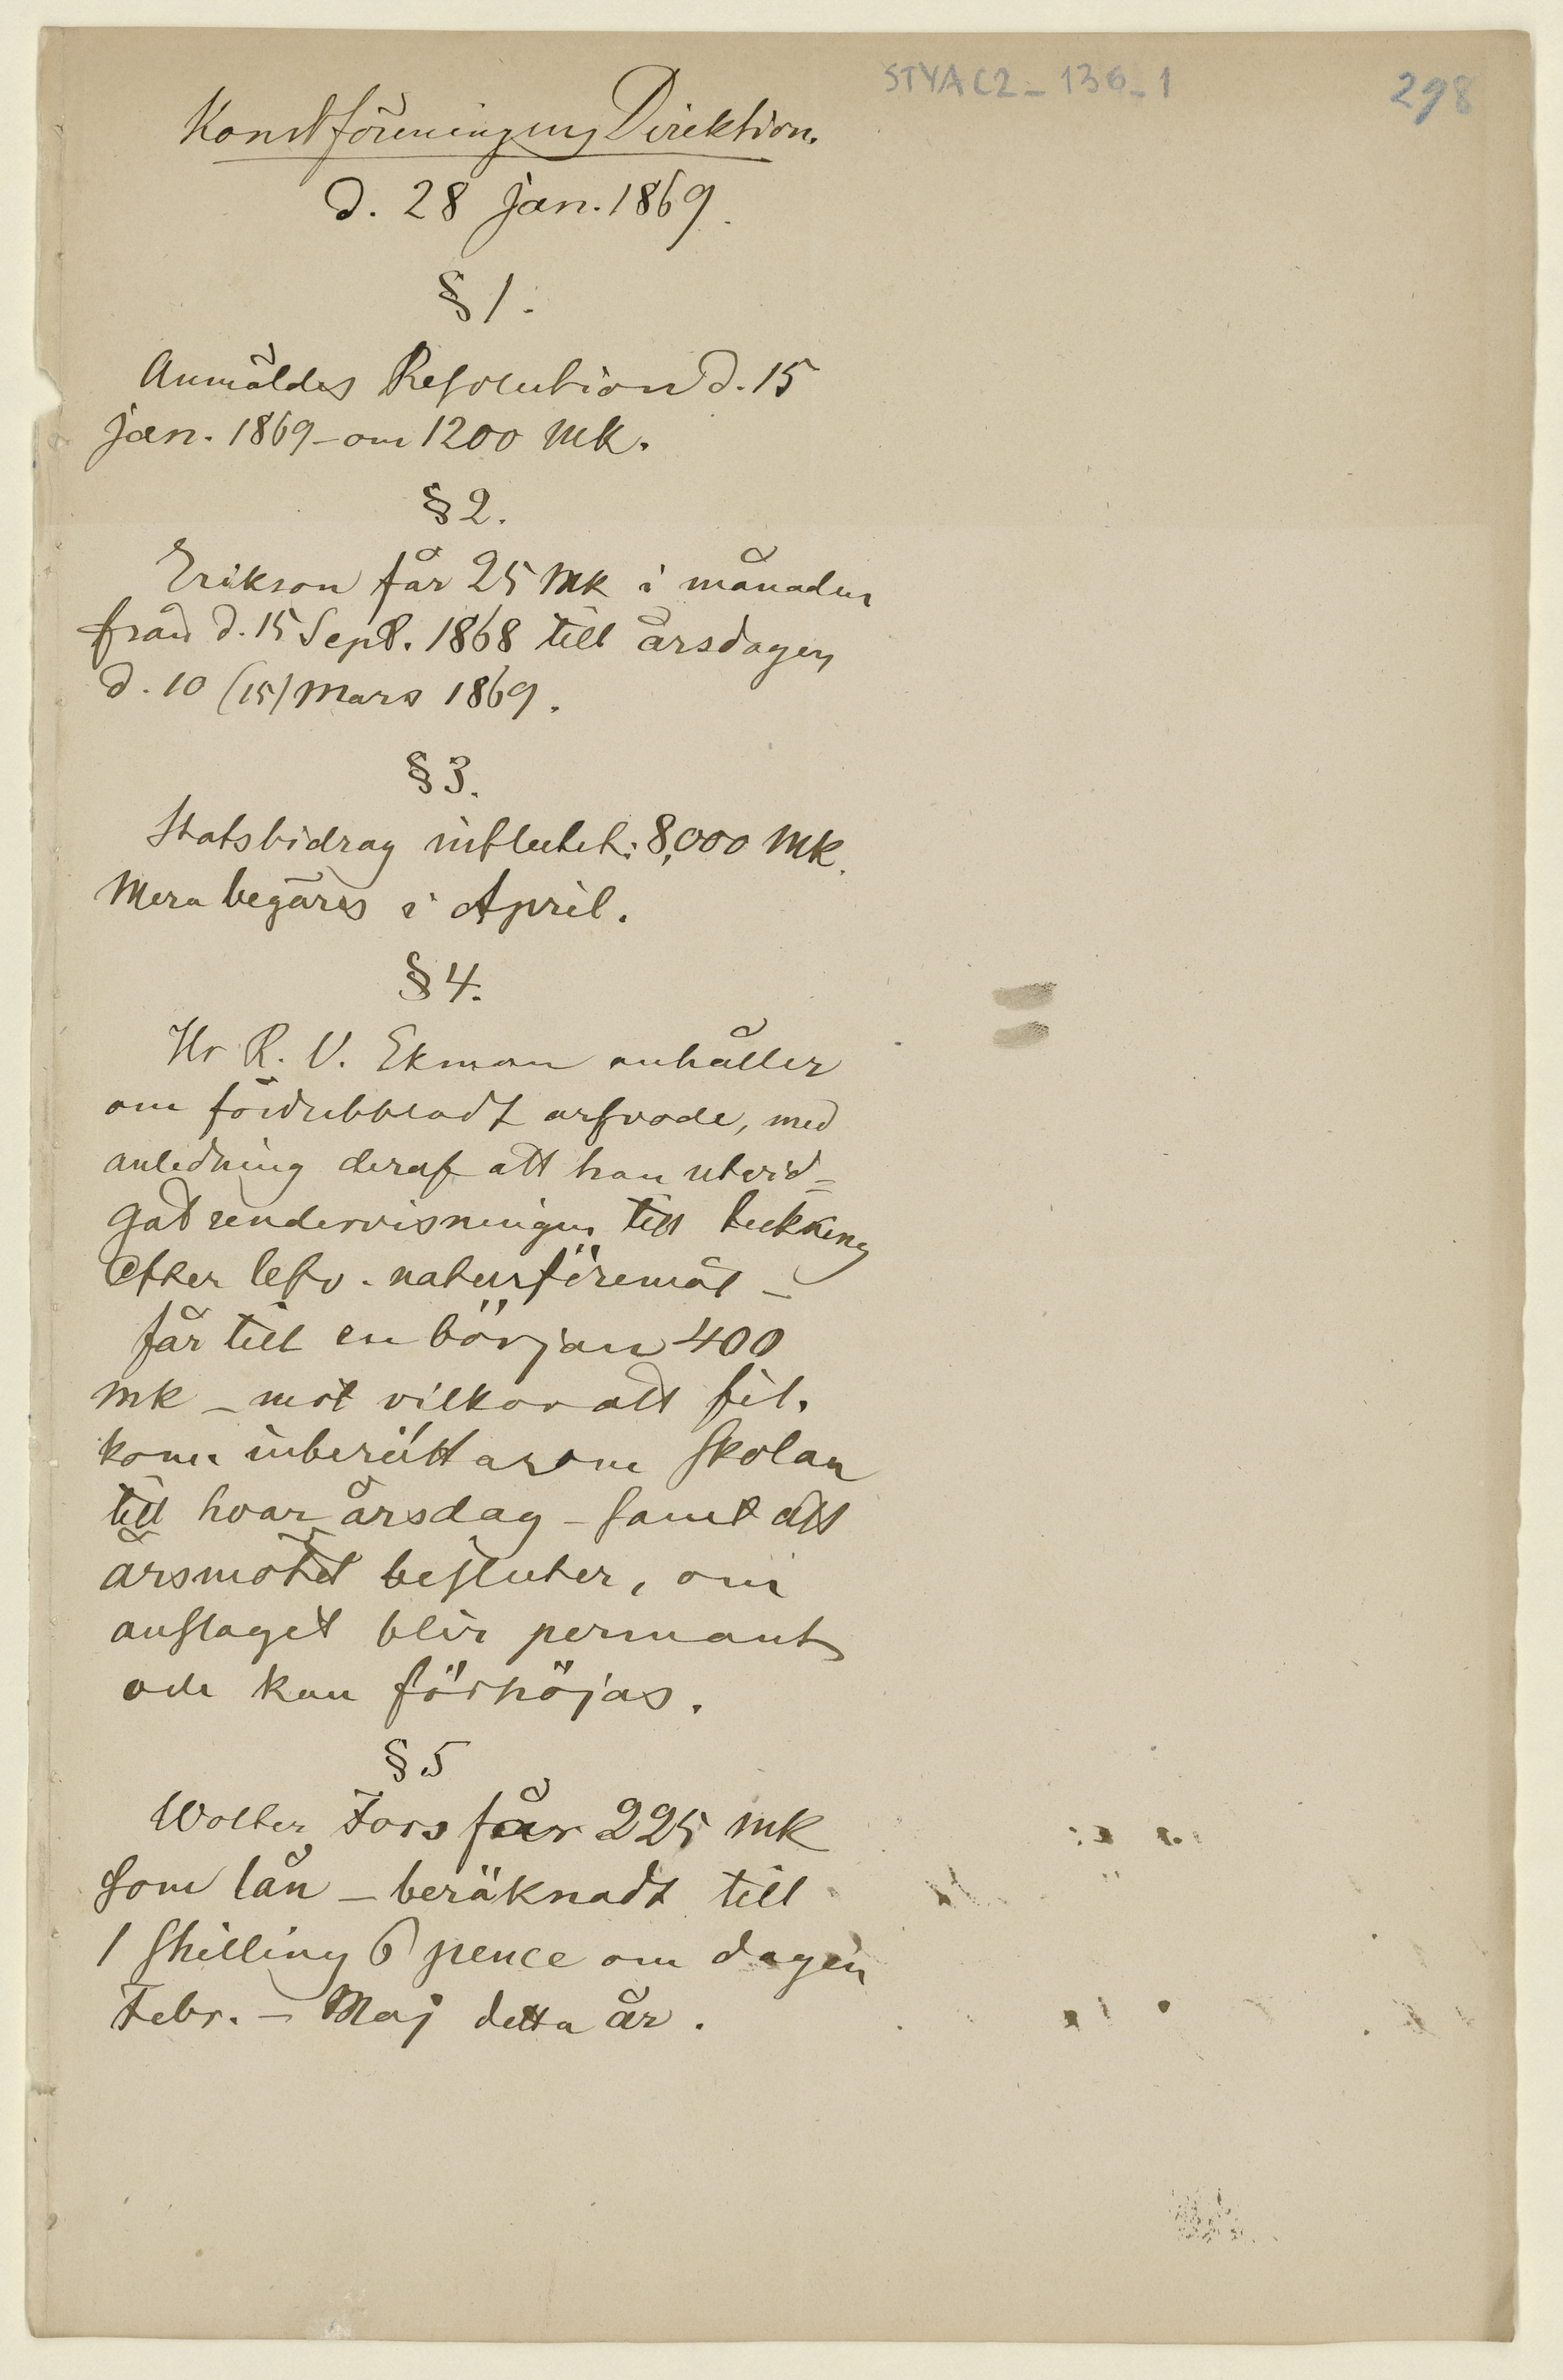 STYA C2 _ 136 _ 1
298
Konstföreningens Direktion.
d. 28 Jan. 1869.
§ 1.
Anmäldes Resolution d. 15
Jan. 1869 – om 1200 Mk.
§ 2.
Erikson får 25 Mk i månaden
från d. 15 Sept. 1868 till årsdagen
d. 10 (15) Mars 1869.
§ 3.
Statsbidrag influtit: 8,000 Mk.
Mera begäres i April.
§ 4.
Hr R. V. Ekman anhåller
om fördubbladt arfvode, med
anledning deraf att han utvid=
gat undervisningen till teckning
efter lefv. naturföremål –
får till en början 400
mk – mot vilkor att
inberättas om skolan
till hvar årsdag – samt att
årsmötet besluter, om
anslaget blir permant
och kan förhöjas.
§ 5
Wolter Fors får 225 mk
som lån – beräknadt till
1 shilling 6 pence om dagen
Febr. – Maj detta år.